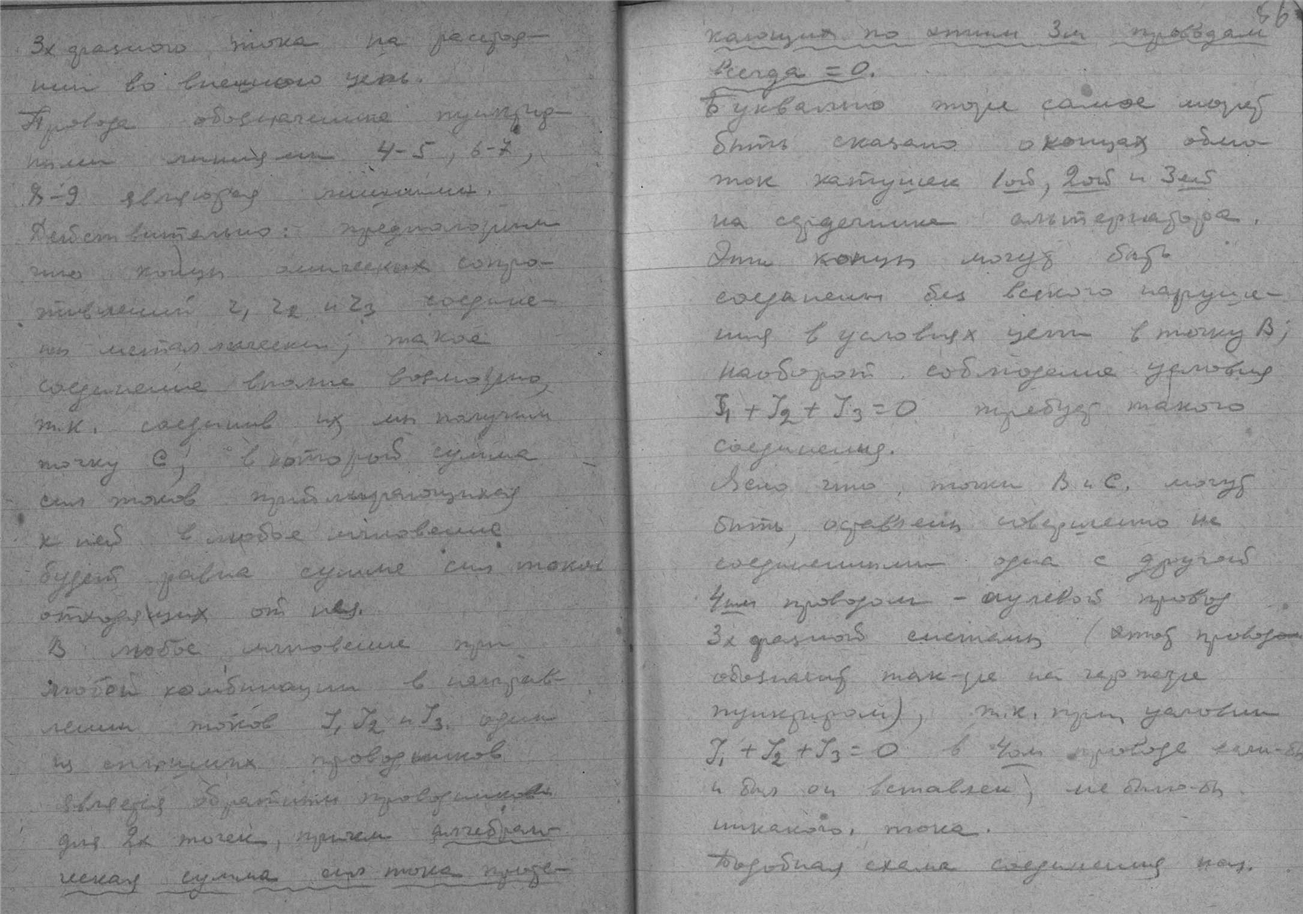 3х фазного тока на расстоя-
нии во внешнюю цепь.
Провода обозначенные пунктир-
ными линиями 4-5, 6-7,
8-9 являются лишними.
Действительно: предположим
что концы омических сопро-
тивлений r1 r2 и r3 соедине-
ны металлически; такое
соединение вполне возможно,
т.к. соединив их мы получим
точку С, в которой сумма
сил токов приближающихся
к ней в любое мгновение
будет равна сумме сил токов
отходящих от нея.
В любое мгновение при
любой комбинации в направ-
лении токов J1 J2 и J3. один
из сплошных проводников
является обратным проводником
для 2х точек, причем алгебраи-
ческая сумма сил тока проте-
86
кающих по этим 3м проводам
всегда = 0.
Буквально тоже самое может
быть сказано о концах обмо-
ток катушек 1ой, 2ой и 3ей
на сердечнике альтернатора.
Эти концы могут быть
соединены без всякого наруше-
ния в условиях цепи в точку В;
наоборот соблюдение условия
J1 + J2 + J3 = 0 требует такого
соединения.
Ясно что, точки В и С. могут
быть, оставлены совершенно не
соединенными одна с другой
4ым проводом - нулевой провод
3х фазной системы (этот провод
обозначен так-же на чертеже
пунктиром), т.к. при условии
J1 + J2 + J3 = 0 в 4ом проводе если-бы
и был он вставлен, не было-бы
никакого. тока.
Подобная схема соединения наз.